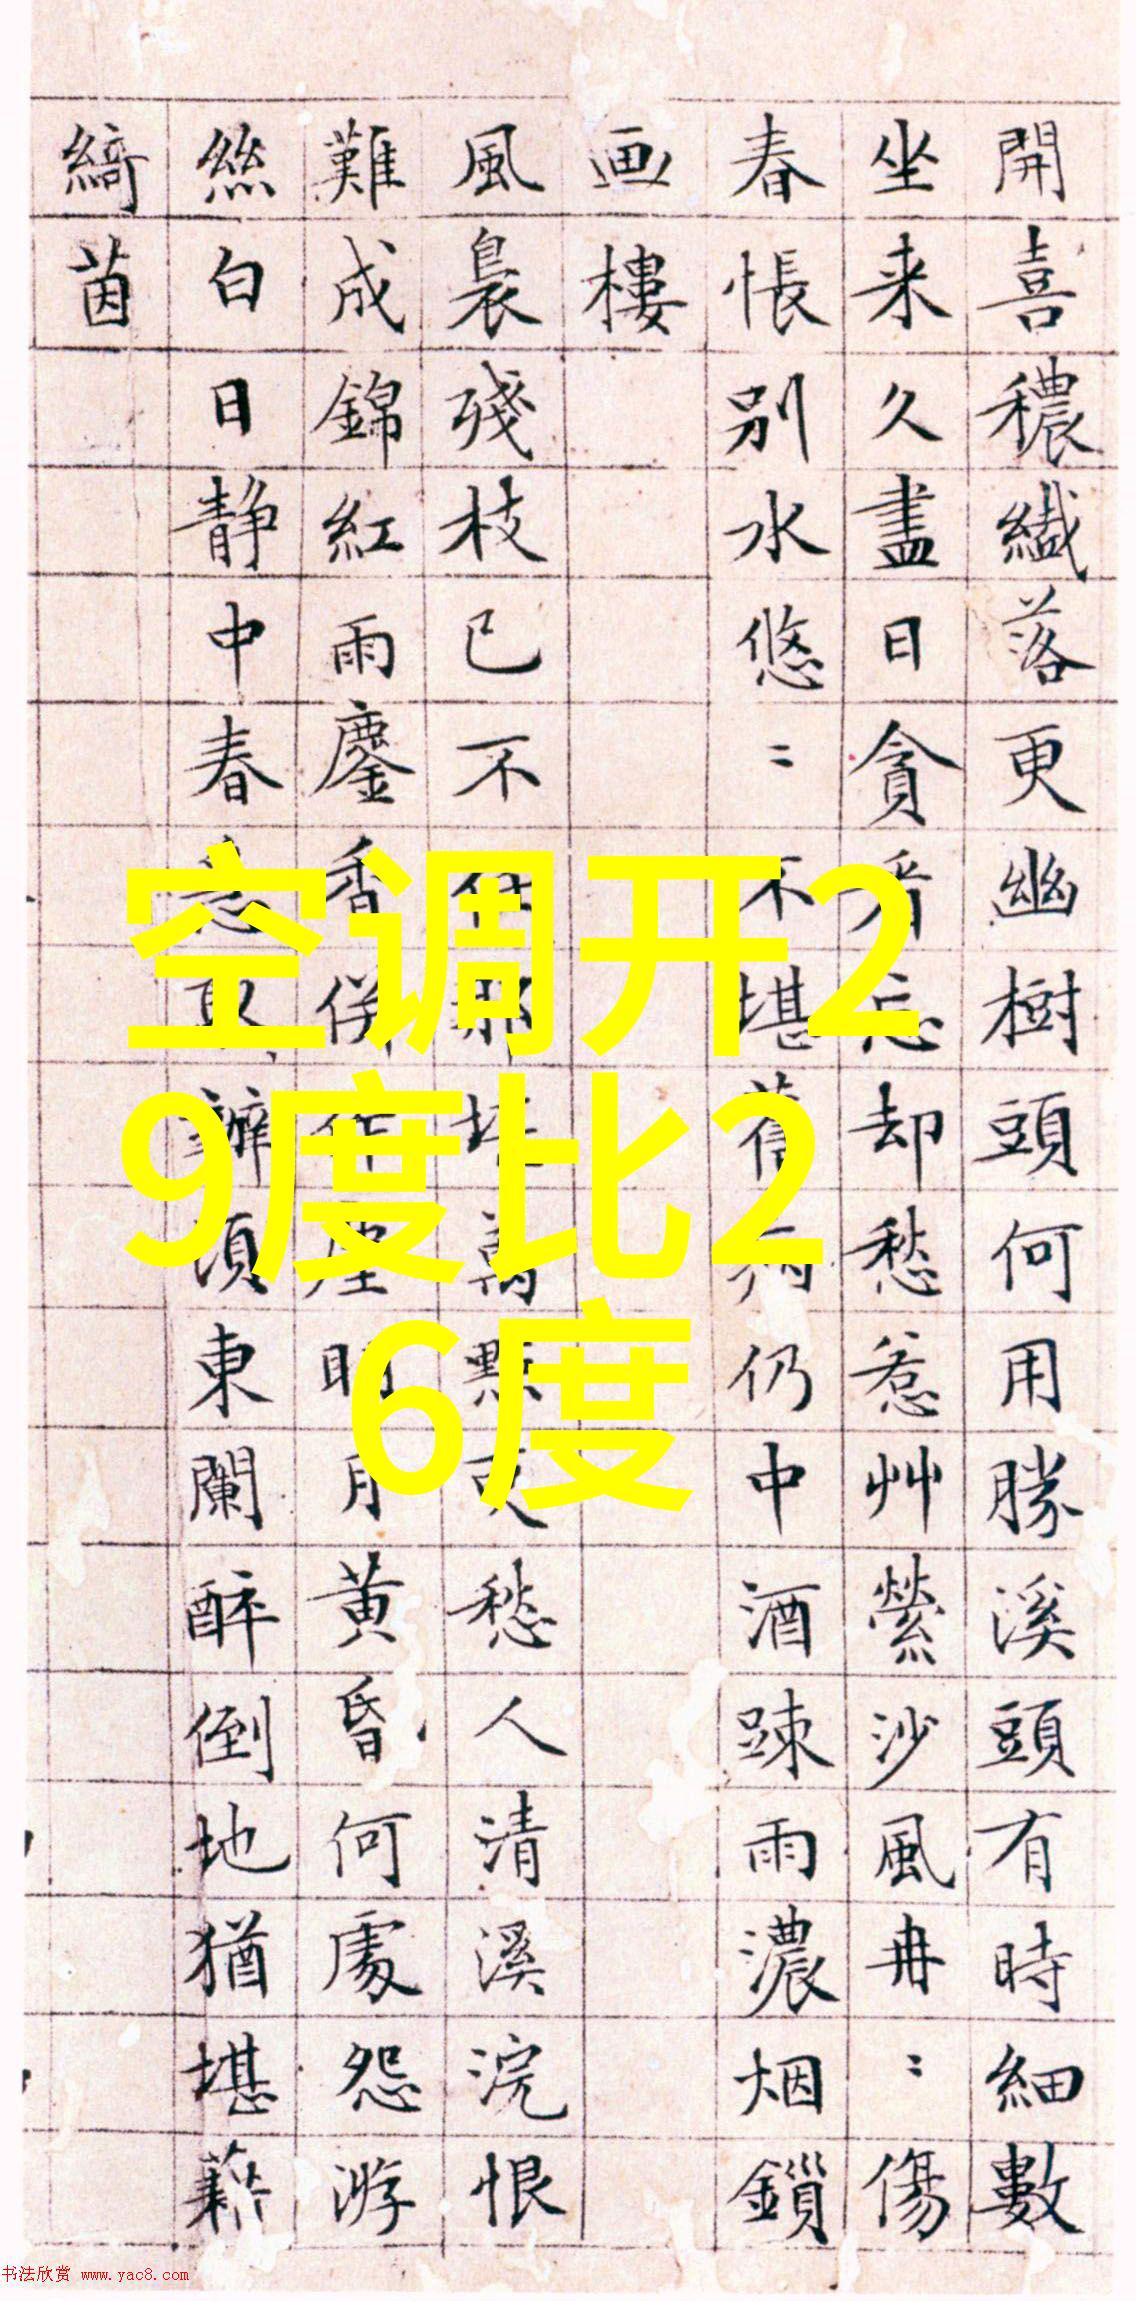 開喜穠繊落更幽樹頭何用勝溪頭有時細數
坐来久盡日貪看忘却愁惹艸縈沙風冉〻傷
春悵別水悠〻不堪舊病仍中酒踈雨濃烟鎖
画樓
風裊殘枝已不任那堪萬點更愁人清溪浣恨
難成錦紅雨鏖香併作塵明月黄昏何處怨游
絲白日静中春意辦須東闌醉倒地猶堪藉
綺茵
空调开2
9度比2
6度
书法欣赏 www.yac8.com